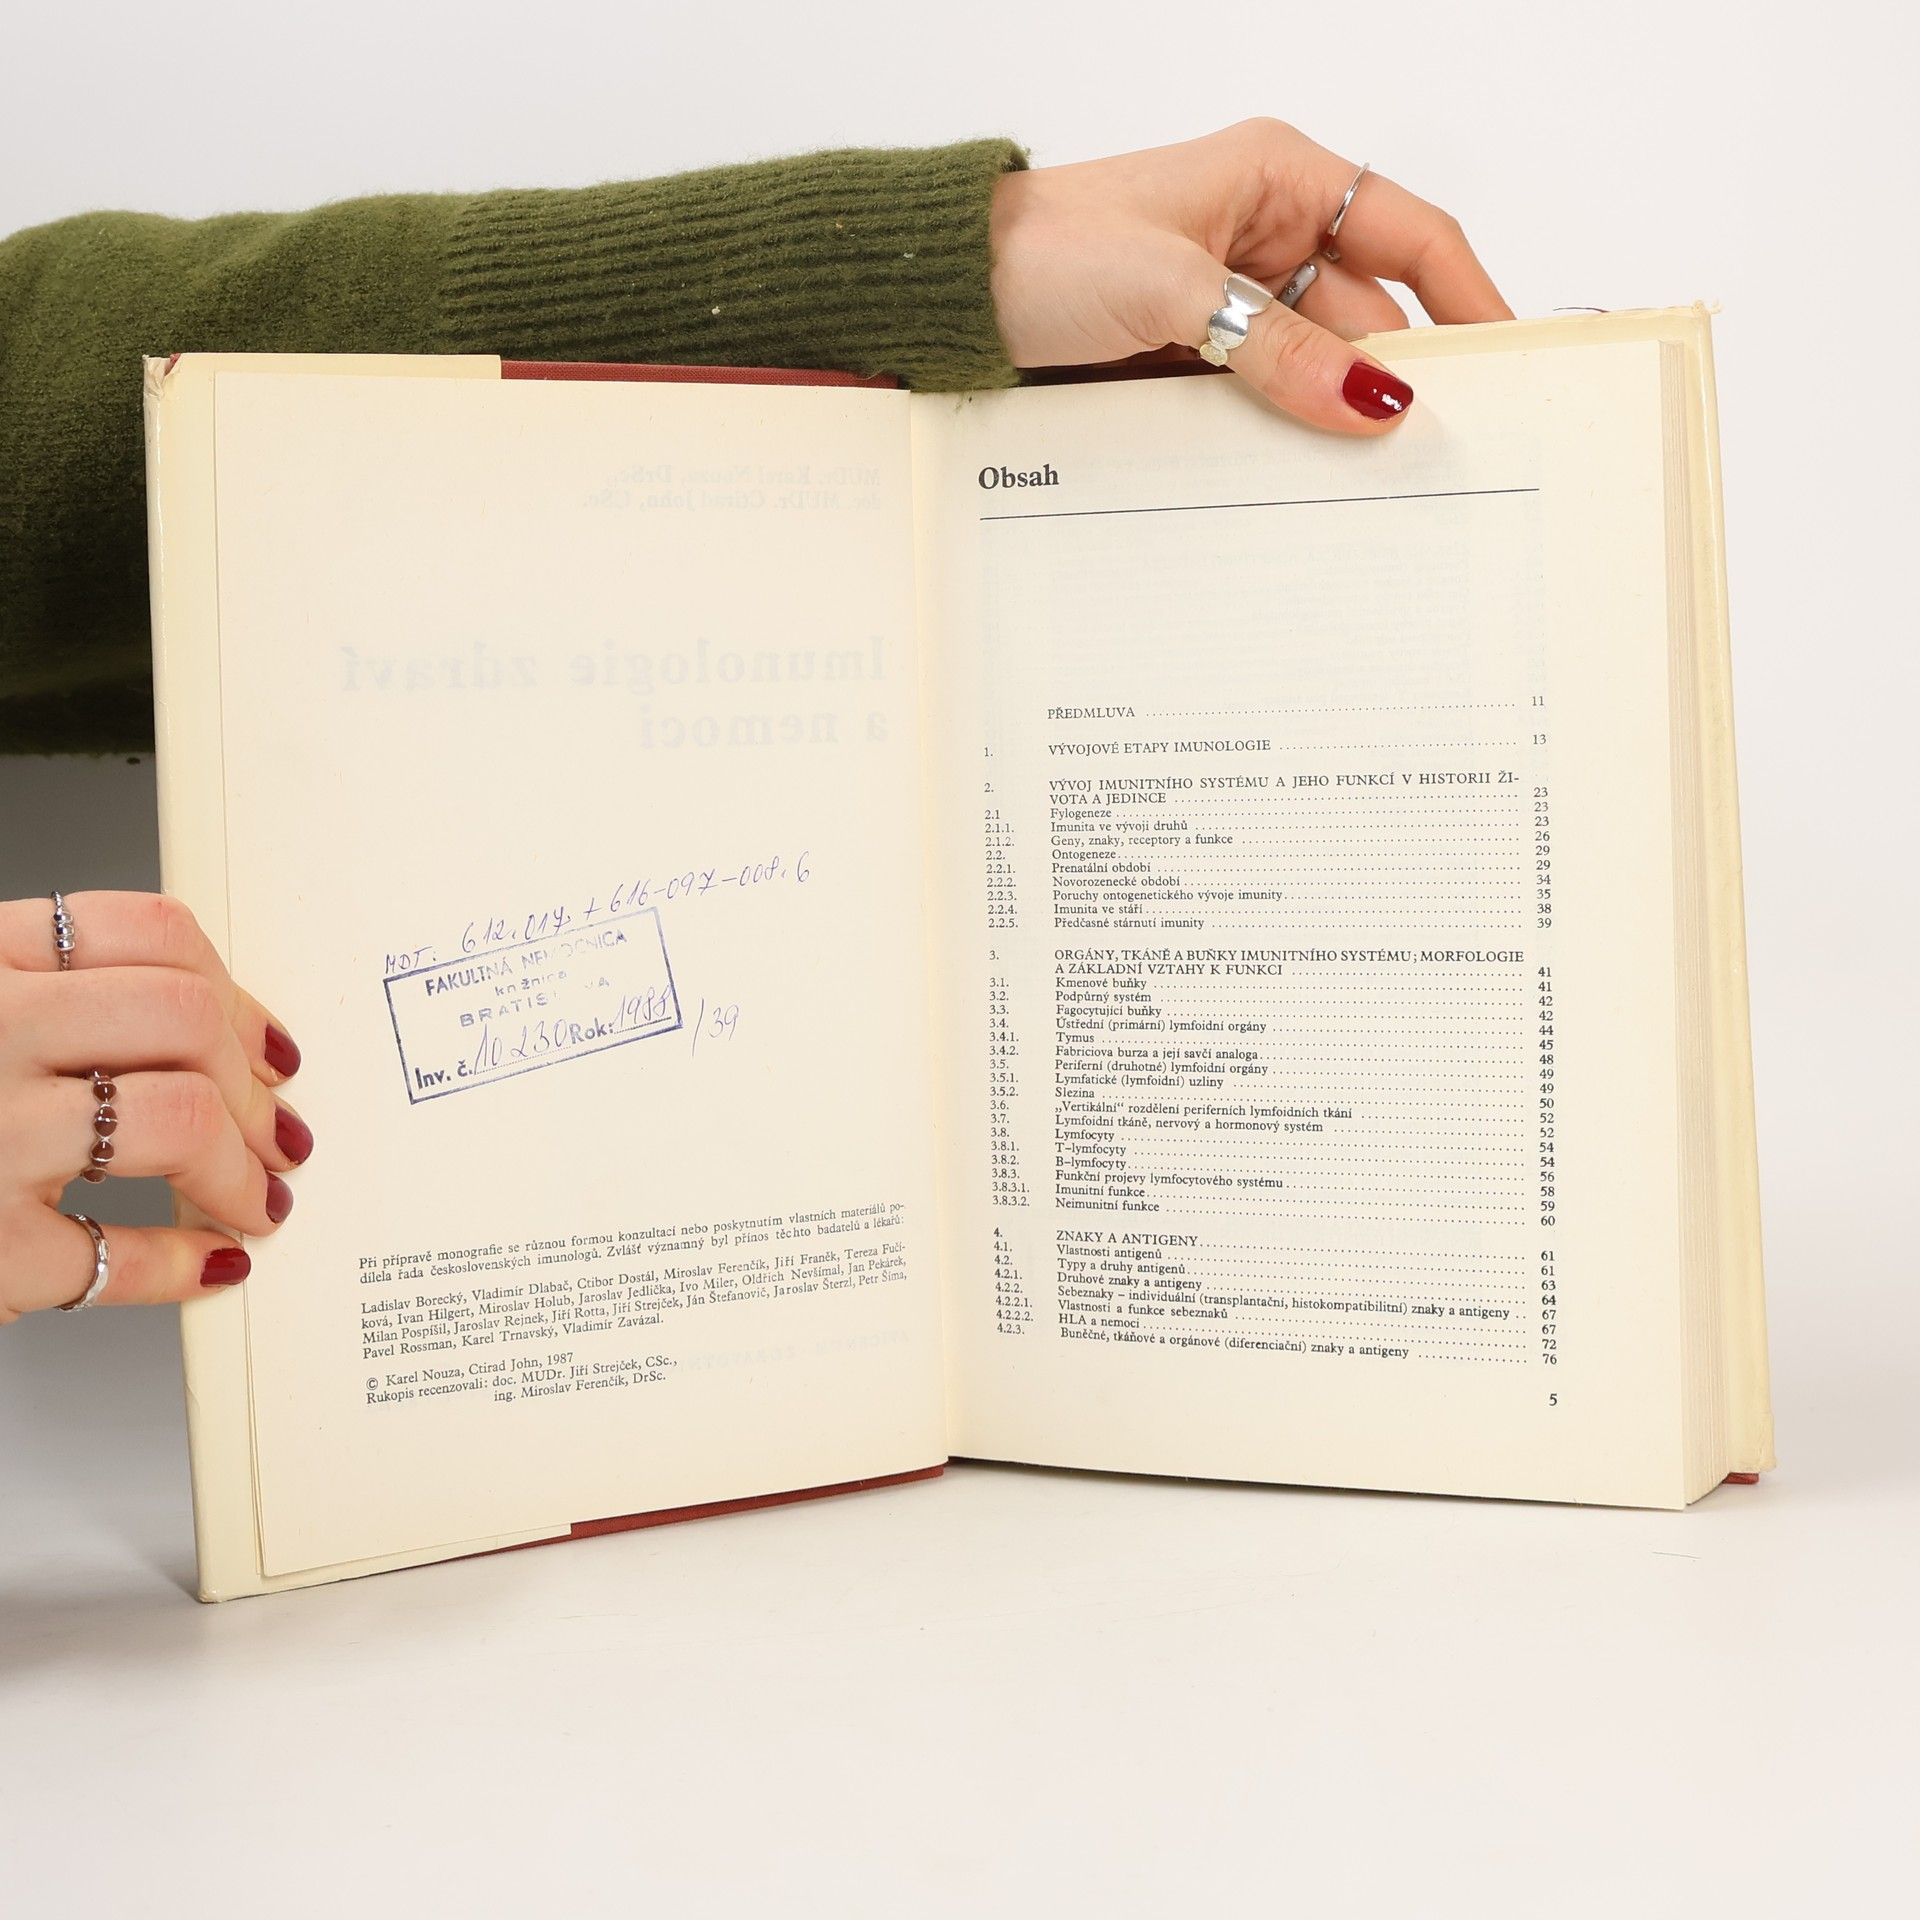 MDT: 612.017 + 616-097-008.6
FAKULTNÁ NEMOCNICA
knižnica
Inv. č. 10 230 Rok: 1988 /39
Při přípravě monografie se různou formou konzultací nebo poskytnutím vlastních materiálů po-
dílela řada československých imunologů. Zvlášť významný byl přínos těchto badatelů a lékařů:
Ladislav Borecký, Vladimír Dlabač, Ctibor Dostál, Miroslav Ferenčík, Jiří Franěk, Tereza Fučí-
ková, Ivan Hilgert, Miroslav Holub, Jaroslav Jedlička, Ivo Miler, Oldřich Nevšímal, Jan Pekárek,
Milan Pospíšil, Jaroslav Rejnek, Jiří Rotta, Jiří Strejček, Ján Štefanovič, Jaroslav Šterzl, Petr Šíma,
Pavel Rossman, Karel Trnavský, Vladimír Zavázal.
© Karel Nouza, Ctirad John, 1987
Rukopis recenzovali: doc. MUDr. Jiří Strejček, CSc.,
ing. Miroslav Ferenčík, DrSc.
MUDr. Karel Nouza, DrSc.,
doc. MUDr. Ctirad John, CSc.
Imunologie zdraví
a nemoci
Obsah
PŘEDMLUVA 11
1. VÝVOJOVÉ ETAPY IMUNOLOGIE 13
2. VÝVOJ IMUNITNÍHO SYSTÉMU A JEHO FUNKCÍ V HISTORII ŽI-
VOTA A JEDINCE 23
2.1 Fylogeneze 23
2.1.1. Imunita ve vývoji druhů 23
2.1.2. Geny, znaky, receptory a funkce 26
2.2. Ontogeneze 29
2.2.1. Prenatální období 29
2.2.2. Novorozenecké období 34
2.2.3. Poruchy ontogenetického vývoje imunity 35
2.2.4. Imunita ve stáří 38
2.2.5. Předčasné stárnutí imunity 39
3. ORGÁNY, TKÁNĚ A BUŇKY IMUNITNÍHO SYSTÉMU; MORFOLOGIE
A ZÁKLADNÍ VZTAHY K FUNKCI 41
3.1. Kmenové buňky 41
3.2. Podpůrný systém 42
3.3. Fagocytující buňky 42
3.4. Ústřední (primární) lymfoidní orgány 44
3.4.1. Tymus 45
3.4.2. Fabriciova burza a její savčí analoga 48
3.5. Periferní (druhotné) lymfoidní orgány 49
3.5.1. Lymfatické (lymfoidní) uzliny 49
3.5.2. Slezina 50
3.6. „Vertikální“ rozdělení periferních lymfoidních tkání 52
3.7. Lymfoidní tkáně, nervový a hormonový systém 52
3.8. Lymfocyty 54
3.8.1. T-lymfocyty 54
3.8.2. B-lymfocyty 56
3.8.3. Funkční projevy lymfocytového systému 58
3.8.3.1. Imunitní funkce 59
3.8.3.2. Neimunitní funkce 60
4. ZNAKY A ANTIGENY 61
4.1. Vlastnosti antigenů 61
4.2. Typy a druhy antigenů 63
4.2.1. Druhové znaky a antigeny 64
4.2.2. Sebeznaky – individuální (transplantační, histokompatibilitní) znaky a antigeny 67
4.2.2.1. Vlastnosti a funkce sebeznaků 67
4.2.2.2. HLA a nemoci 72
4.2.3. Buněčné, tkáňové a orgánové (diferenciační) znaky a antigeny 76
5